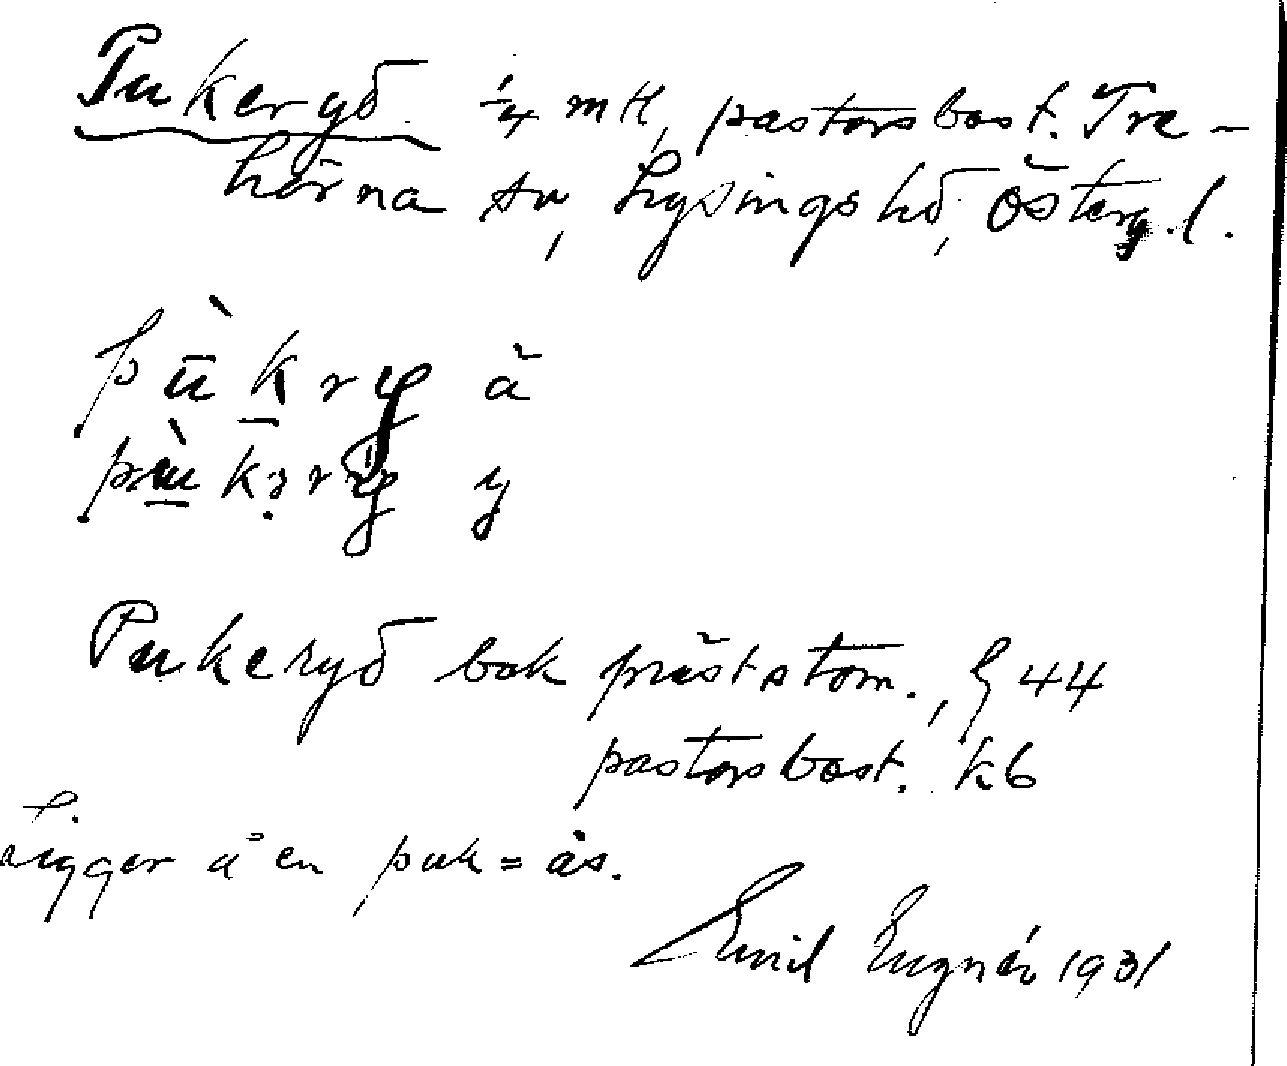 Pukeryd ¼ mtl, pastorsbost. Tre-
hörna sn, Lysings hd, Österg. l.
pùkry ä
pùkərry y
Pukeryd bok präststom., § 44
pastorsbost. kb
Ligger å en puk = ås.
Emil Eugnér 1931